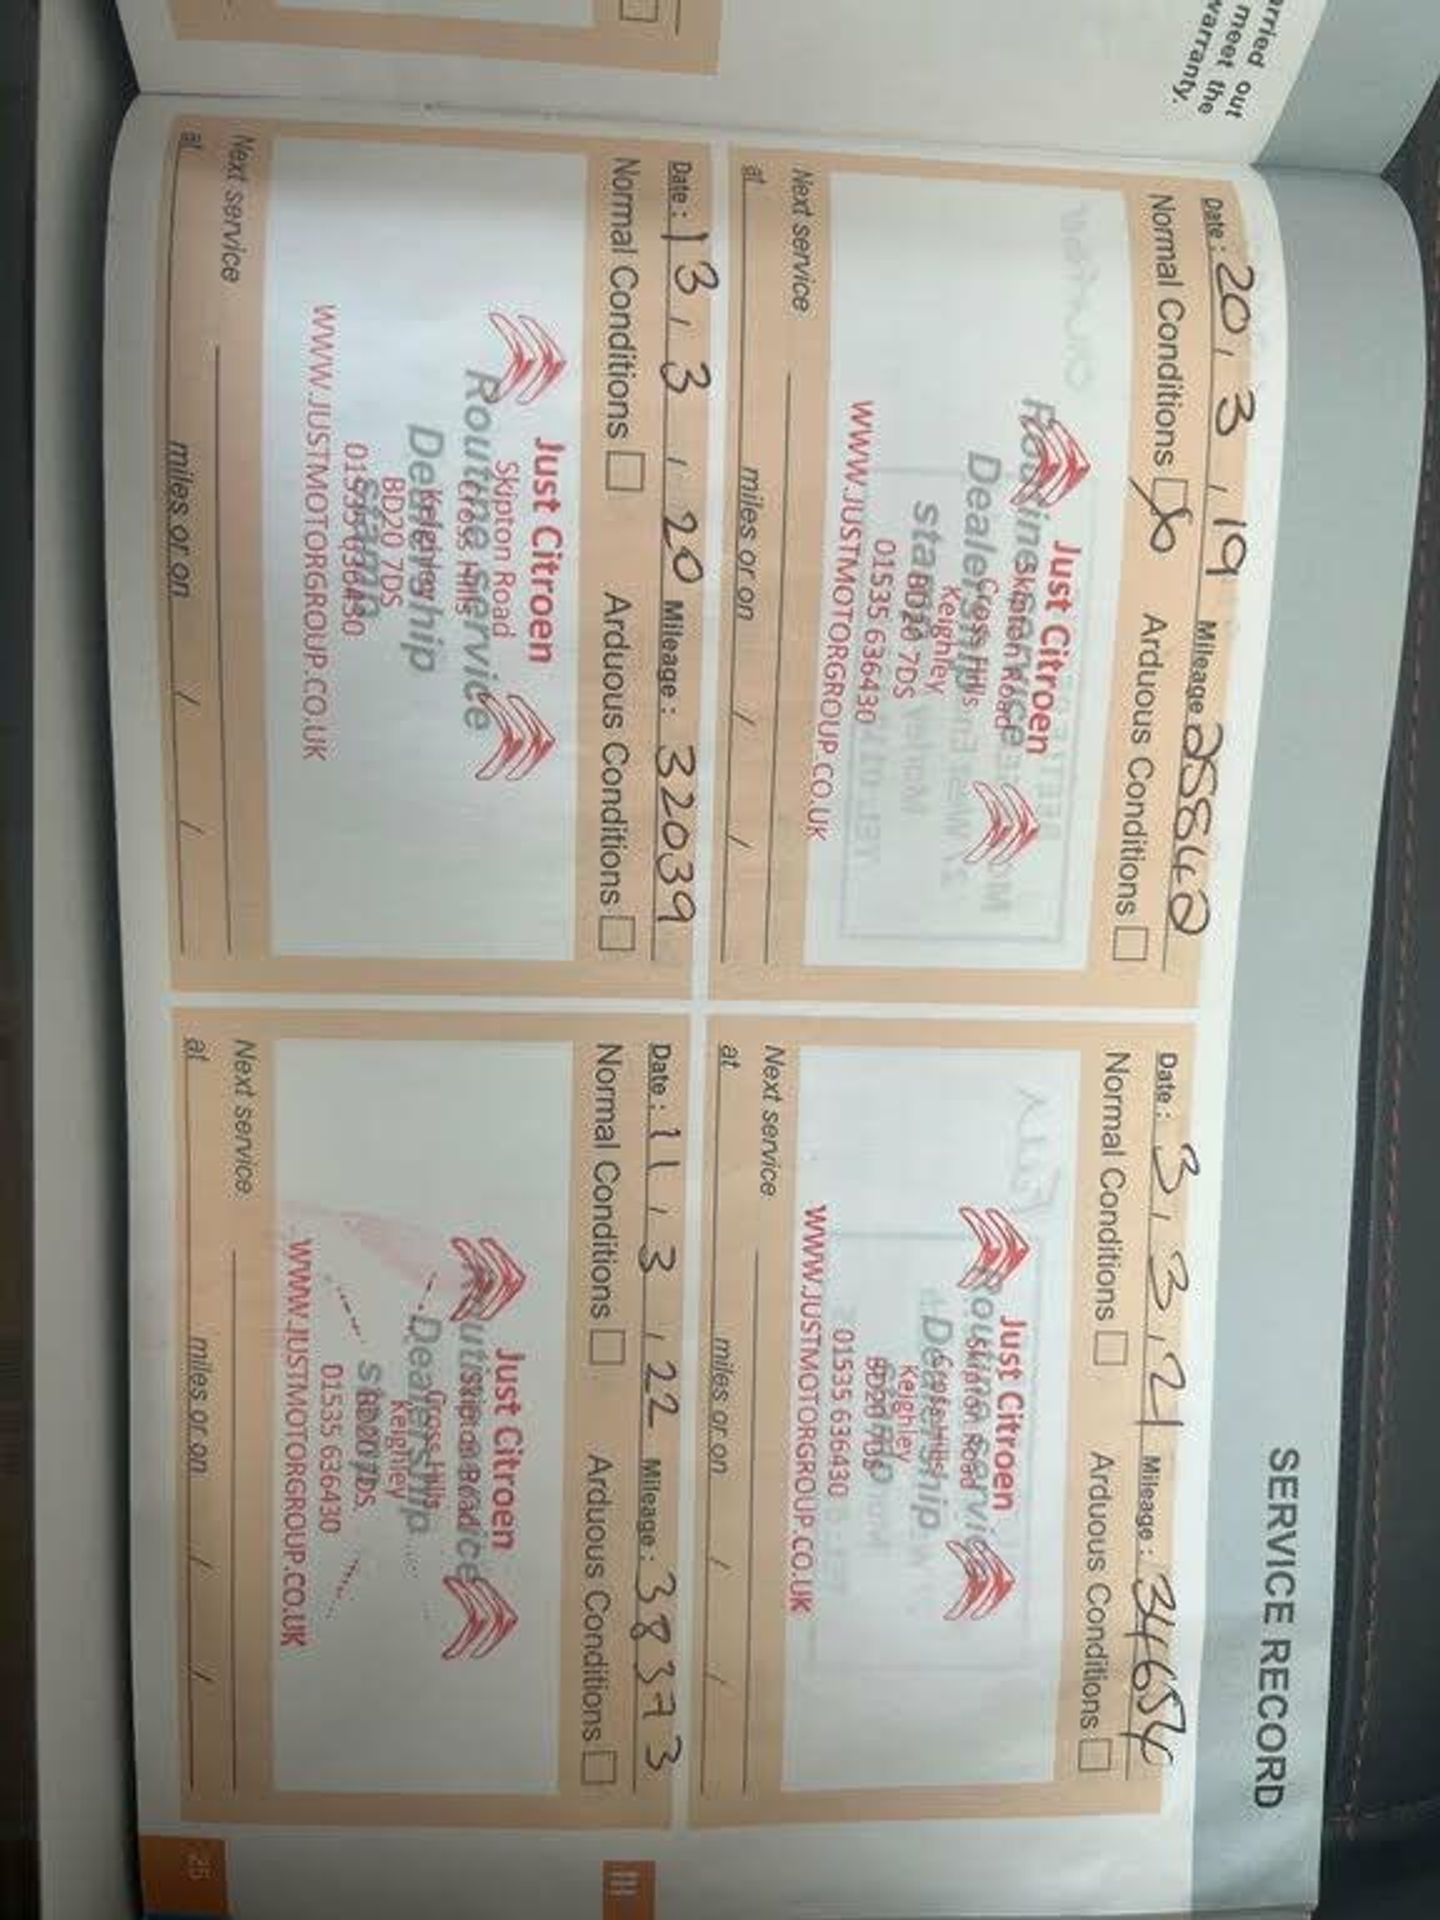 arried out
meet the
warranty.
SERVICE RECORD
Date : 20 / 3 / 19 Mileage 25842
Normal Conditions Arduous Conditions
Routine service
Dealership
stamp
Just Citroen
Skipton Road
Cross Hills
Keighley
BD20 7DS
01535 636430
WWW.JUSTMOTORGROUP.CO.UK
Next service
at miles or on / /
Date : 3 / 3 / 21 Mileage : 34654
Normal Conditions Arduous Conditions
Routine service
Dealership
stamp
Just Citroen
Skipton Road
Cross Hills
Keighley
BD20 7DS
01535 636430
WWW.JUSTMOTORGROUP.CO.UK
Next service
at miles or on / /
Date : 13 / 3 / 20 Mileage : 32039
Normal Conditions Arduous Conditions
Routine service
Dealership
stamp
Just Citroen
Skipton Road
Cross Hills
Keighley
BD20 7DS
01535 636430
WWW.JUSTMOTORGROUP.CO.UK
Next service
at miles or on / /
Date : 11 / 3 / 22 Mileage : 38373
Normal Conditions Arduous Conditions
Routine service
Dealership
stamp
Just Citroen
Skipton Road
Cross Hills
Keighley
BD20 7DS
01535 636430
WWW.JUSTMOTORGROUP.CO.UK
Next service
at miles or on / /
III
25